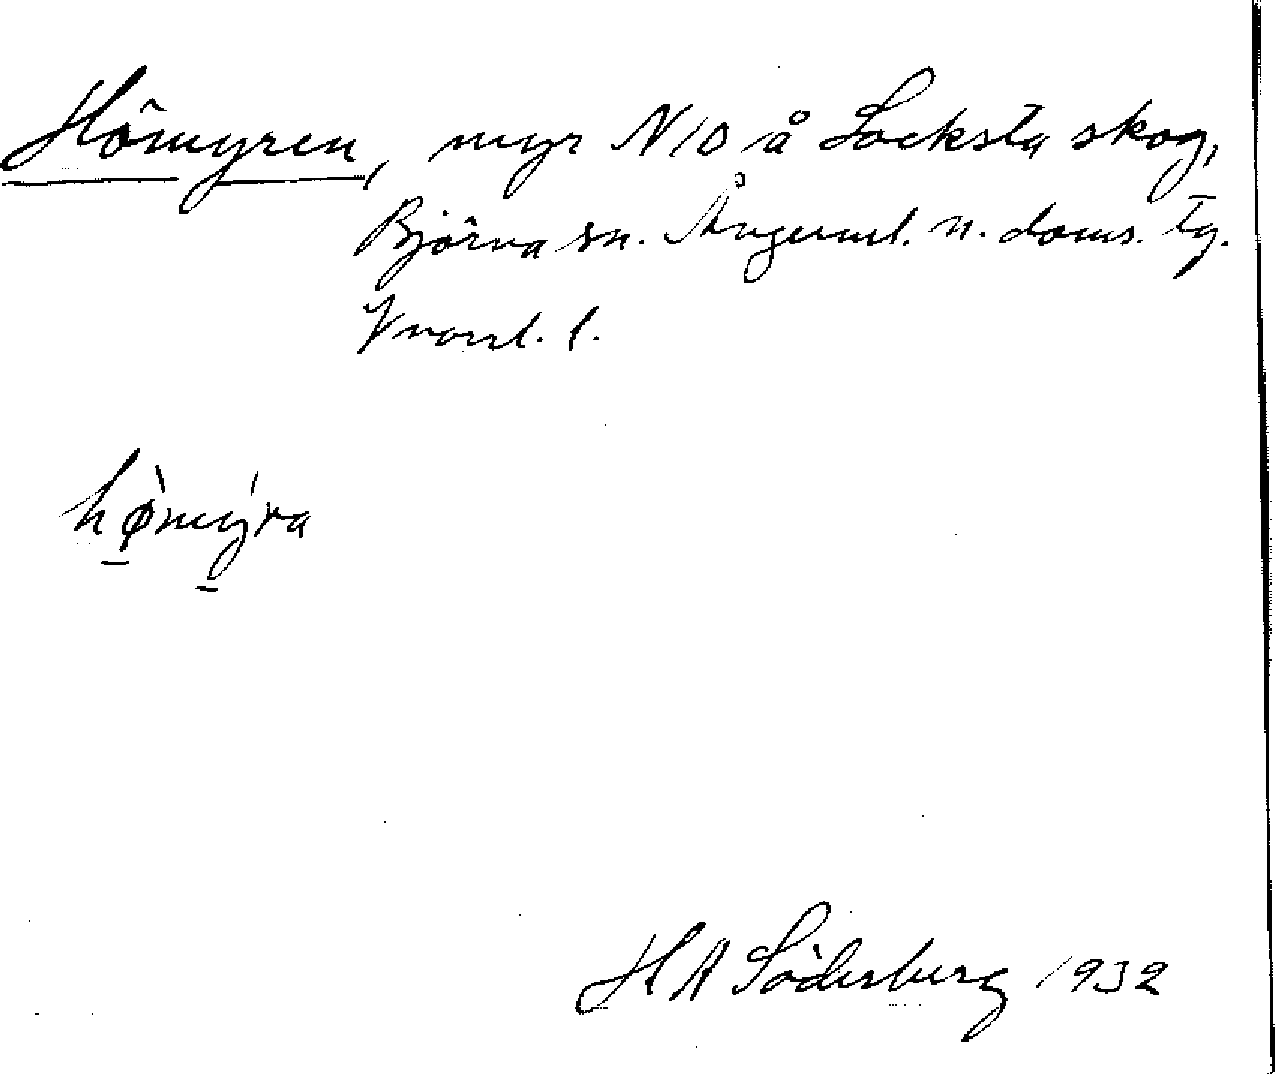 Hömyren, myr N/O å Locksta skog,
Björna sn. Ångerml. n. doms. tg.
Vnorrl. l.
hø̀mýra
H A Söderberg 1932